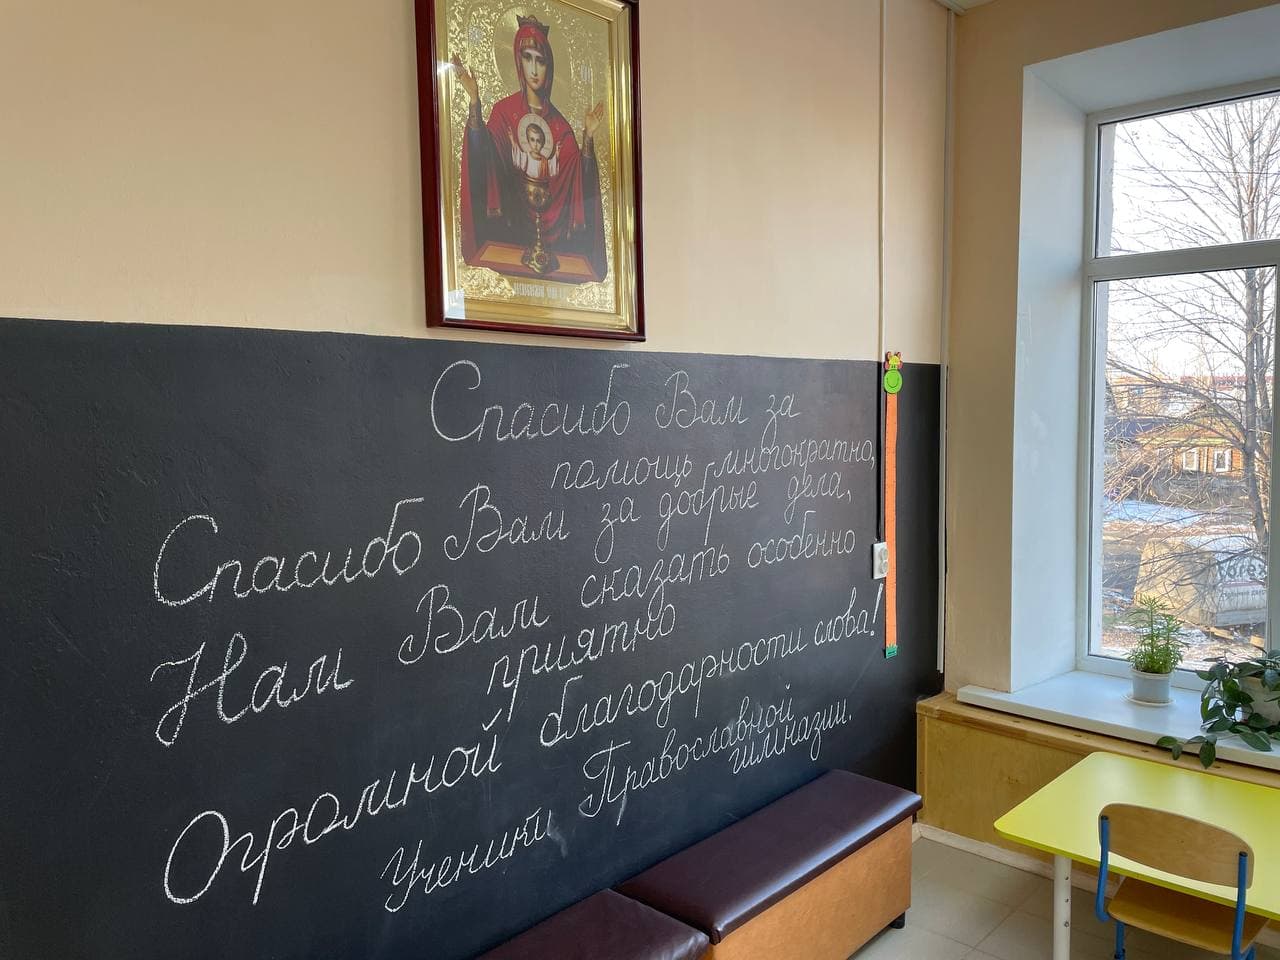 Спасибо Вам за
помощь многократно,
Спасибо Вам за добрые дела,
Нам Вам сказать особенно
приятно
Огромной благодарности слова!
Ученики Православной
гимназии.